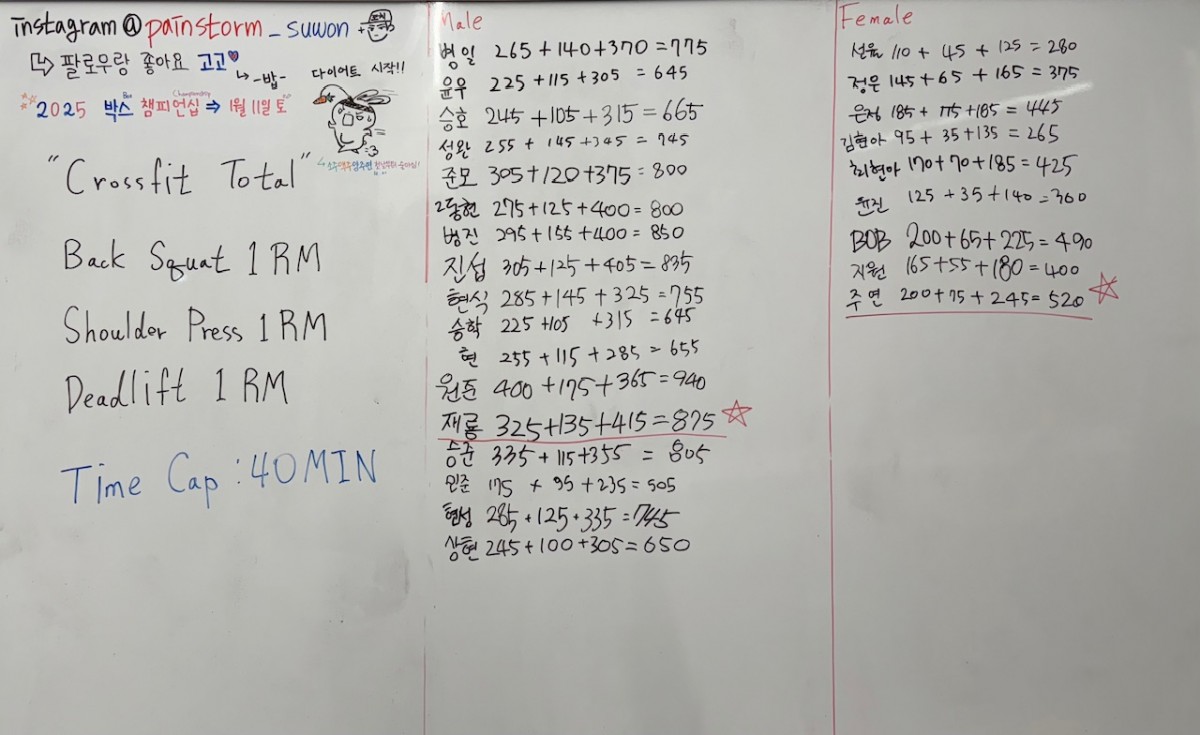 instagram@painstorm_suwon
팔로우랑 좋아요 고고
-밥-
다이어트 시작!!
2025 박스 챔피언십 → 1월 11일 토
Championship
"Crossfit Total"
Back Squat 1RM
Shoulder Press 1RM
Deadlift 1RM
Time Cap : 40MIN
Male
병일 265+140+370=775
윤우 225+115+305=645
승호 245+105+315=665
성완 255+145+345=745
준모 305+120+375=800
2동현 275+125+400=800
병진 295+155+400=850
진섭 305+125+405=835
현식 285+145+325=755
승학 225+105+315=645
현 255+115+285=655
원준 400+175+365=940
재룡 325+135+415=875
승준 335+115+355=805
민준 175+95+235=505
현성 285+125+335=745
상현 245+100+305=650
Female
선율 110+45+125=280
정은 145+65+165=375
은정 185+75+185=445
김현아 95+35+135=265
최현아 170+70+185=425
윤진 125+35+140=300
BOB 200+65+225=490
지원 165+55+180=400
주연 200+75+245=520